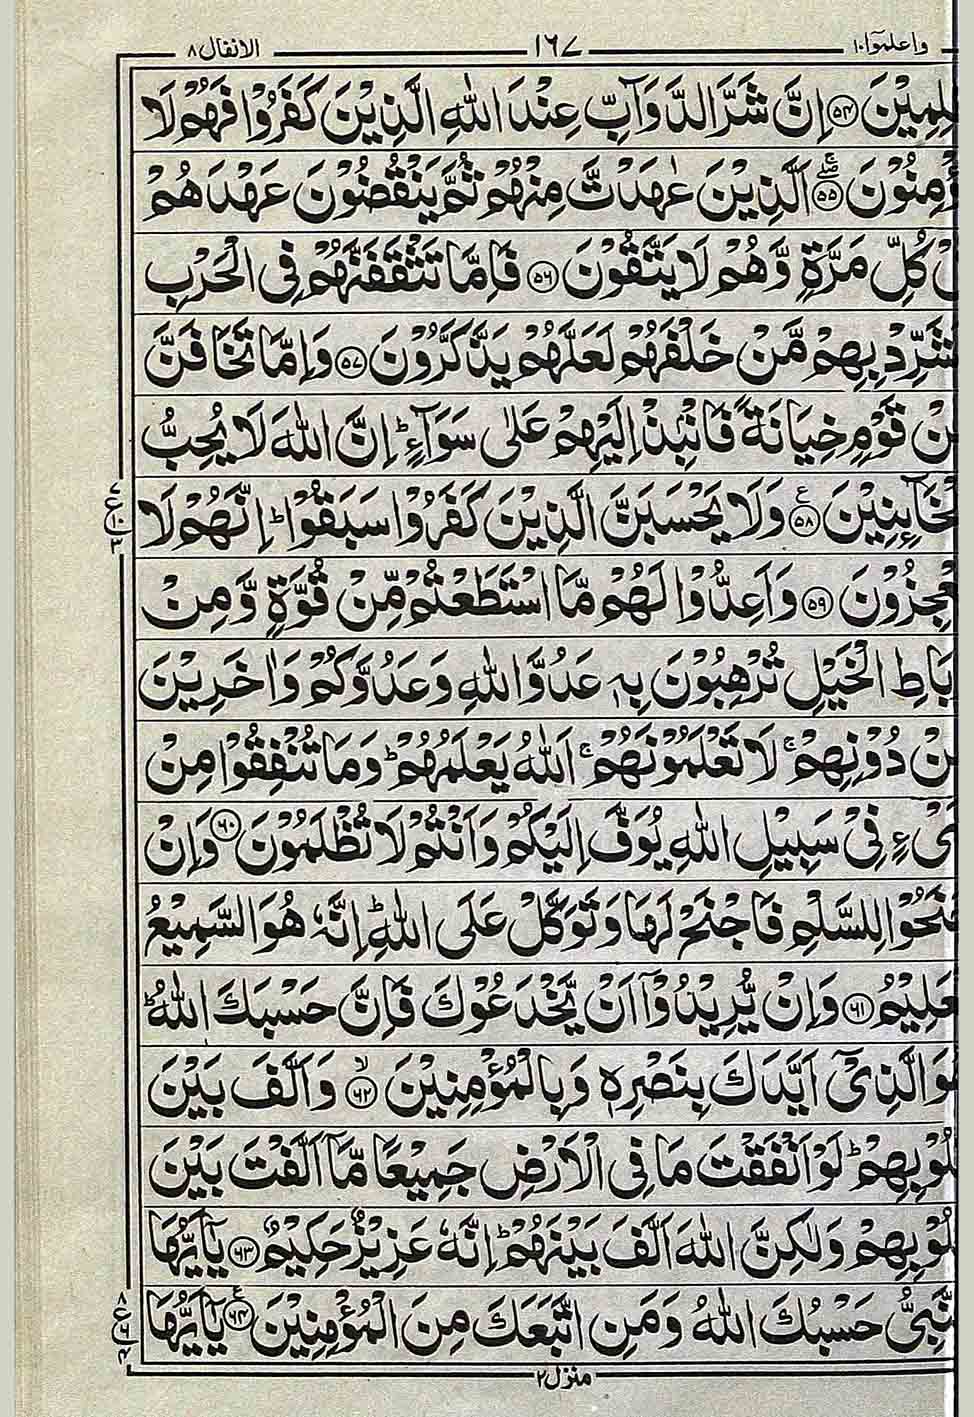 واعلموٓا ١٠ ١٦٧ الانفال ٨
لِمِيْنَ ﴿٥٤﴾ اِنَّ شَرَّ الدَّوَآبِّ عِنْدَ اللّٰهِ الَّذِيْنَ كَفَرُوْا فَهُمْ لَا
ؤْمِنُوْنَ ﴿٥٥﴾ اَلَّذِيْنَ عٰهَدْتَّ مِنْهُمْ ثُمَّ يَنْقُضُوْنَ عَهْدَهُمْ
كُلِّ مَرَّةٍ وَّهُمْ لَا يَتَّقُوْنَ ﴿٥٦﴾ فَاِمَّا تَثْقَفَنَّهُمْ فِى الْحَرْبِ
شَرِّدْ بِهِمْ مَّنْ خَلْفَهُمْ لَعَلَّهُمْ يَذَّكَّرُوْنَ ﴿٥٧﴾ وَاِمَّا تَخَافَنَّ
نْ قَوْمٍ خِيَانَةً فَانْۢبِذْ اِلَيْهِمْ عَلٰى سَوَآءٍ ؕ اِنَّ اللّٰهَ لَا يُحِبُّ
خَآئِنِيْنَ ﴿٥٨﴾ وَلَا يَحْسَبَنَّ الَّذِيْنَ كَفَرُوْا سَبَقُوْا ؕ اِنَّهُمْ لَا
عْجِزُوْنَ ﴿٥٩﴾ وَاَعِدُّوْا لَهُمْ مَّا اسْتَطَعْتُمْ مِّنْ قُوَّةٍ وَّمِنْ
بَاطِ الْخَيْلِ تُرْهِبُوْنَ بِهٖ عَدُوَّ اللّٰهِ وَعَدُوَّكُمْ وَاٰخَرِيْنَ
نْ دُوْنِهِمْ ۚ لَا تَعْلَمُوْنَهُمْ ۚ اَللّٰهُ يَعْلَمُهُمْ ؕ وَمَا تُنْفِقُوْا مِنْ
ىْءٍ فِىْ سَبِيْلِ اللّٰهِ يُوَفَّ اِلَيْكُمْ وَاَنْتُمْ لَا تُظْلَمُوْنَ ﴿٦٠﴾ وَاِنْ
نَحُوْا لِلسَّلْمِ فَاجْنَحْ لَهَا وَتَوَكَّلْ عَلَى اللّٰهِ ؕ اِنَّهٗ هُوَ السَّمِيْعُ
عَلِيْمُ ﴿٦١﴾ وَاِنْ يُّرِيْدُوْۤا اَنْ يَّخْدَعُوْكَ فَاِنَّ حَسْبَكَ اللّٰهُ ؕ
وَ الَّذِىْۤ اَيَّدَكَ بِنَصْرِهٖ وَبِالْمُؤْمِنِيْنَ ۙ﴿٦٢﴾ وَاَلَّفَ بَيْنَ
لُوْبِهِمْ ؕ لَوْ اَنْفَقْتَ مَا فِى الْاَرْضِ جَمِيْعًا مَّاۤ اَلَّفْتَ بَيْنَ
لُوْبِهِمْ وَلٰكِنَّ اللّٰهَ اَلَّفَ بَيْنَهُمْ ؕ اِنَّهٗ عَزِيْزٌ حَكِيْمٌ ﴿٦٣﴾ يٰۤاَيُّهَا
نَّبِىُّ حَسْبُكَ اللّٰهُ وَمَنِ اتَّبَعَكَ مِنَ الْمُؤْمِنِيْنَ ﴿٦٤﴾ يٰۤاَيُّهَا
منزل ٢